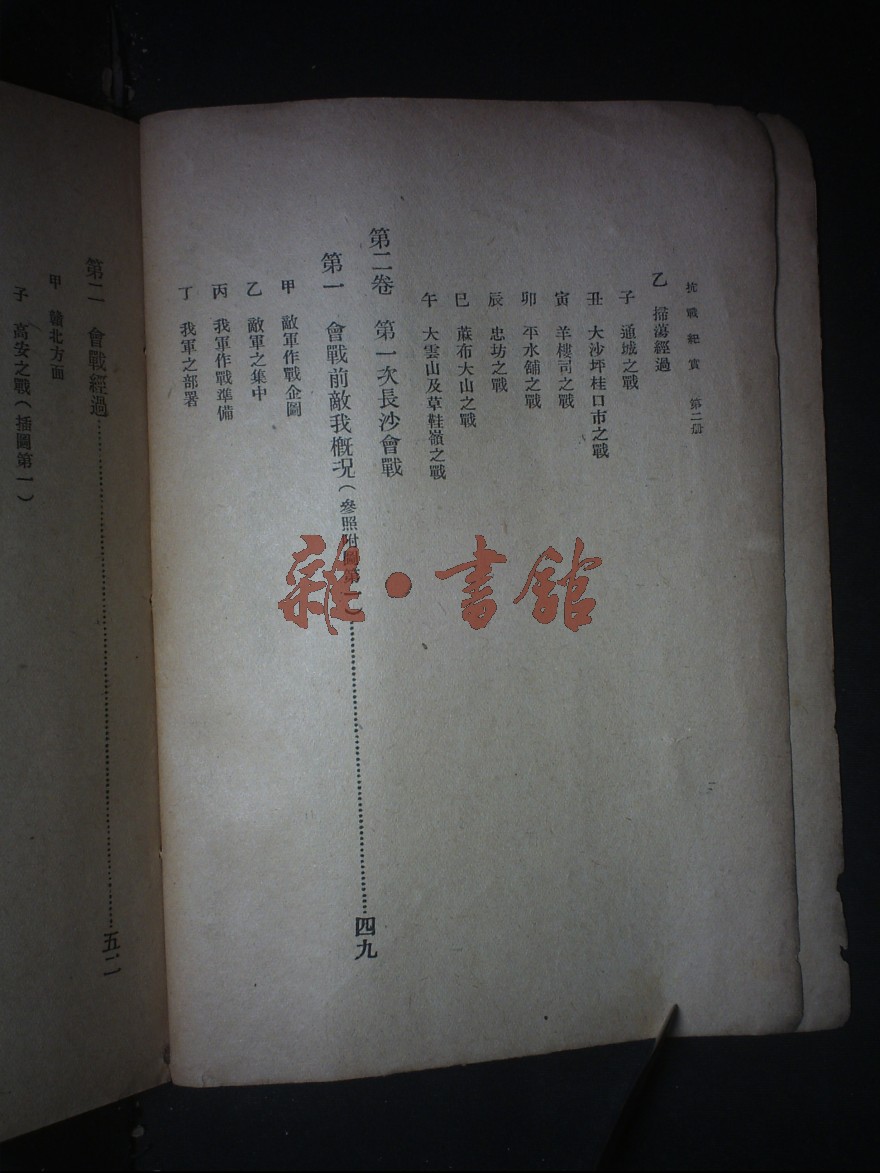 抗戰紀實 第二册
乙 掃蕩經過
子 通城之戰
丑 大沙坪桂口市之戰
寅 羊樓司之戰
卯 平水舖之戰
辰 忠坊之戰
巳 蔴布大山之戰
午 大雲山及草鞋嶺之戰
第二卷 第一次長沙會戰
第一 會戰前敵我槪況(參照附圖第一)……四九
甲 敵軍作戰企圖
乙 敵軍之集中
丙 我軍作戰準備
丁 我軍之部署
二
第二 會戰經過……五二
甲 贛北方面
子 高安之戰(插圖第一)
雜·書館